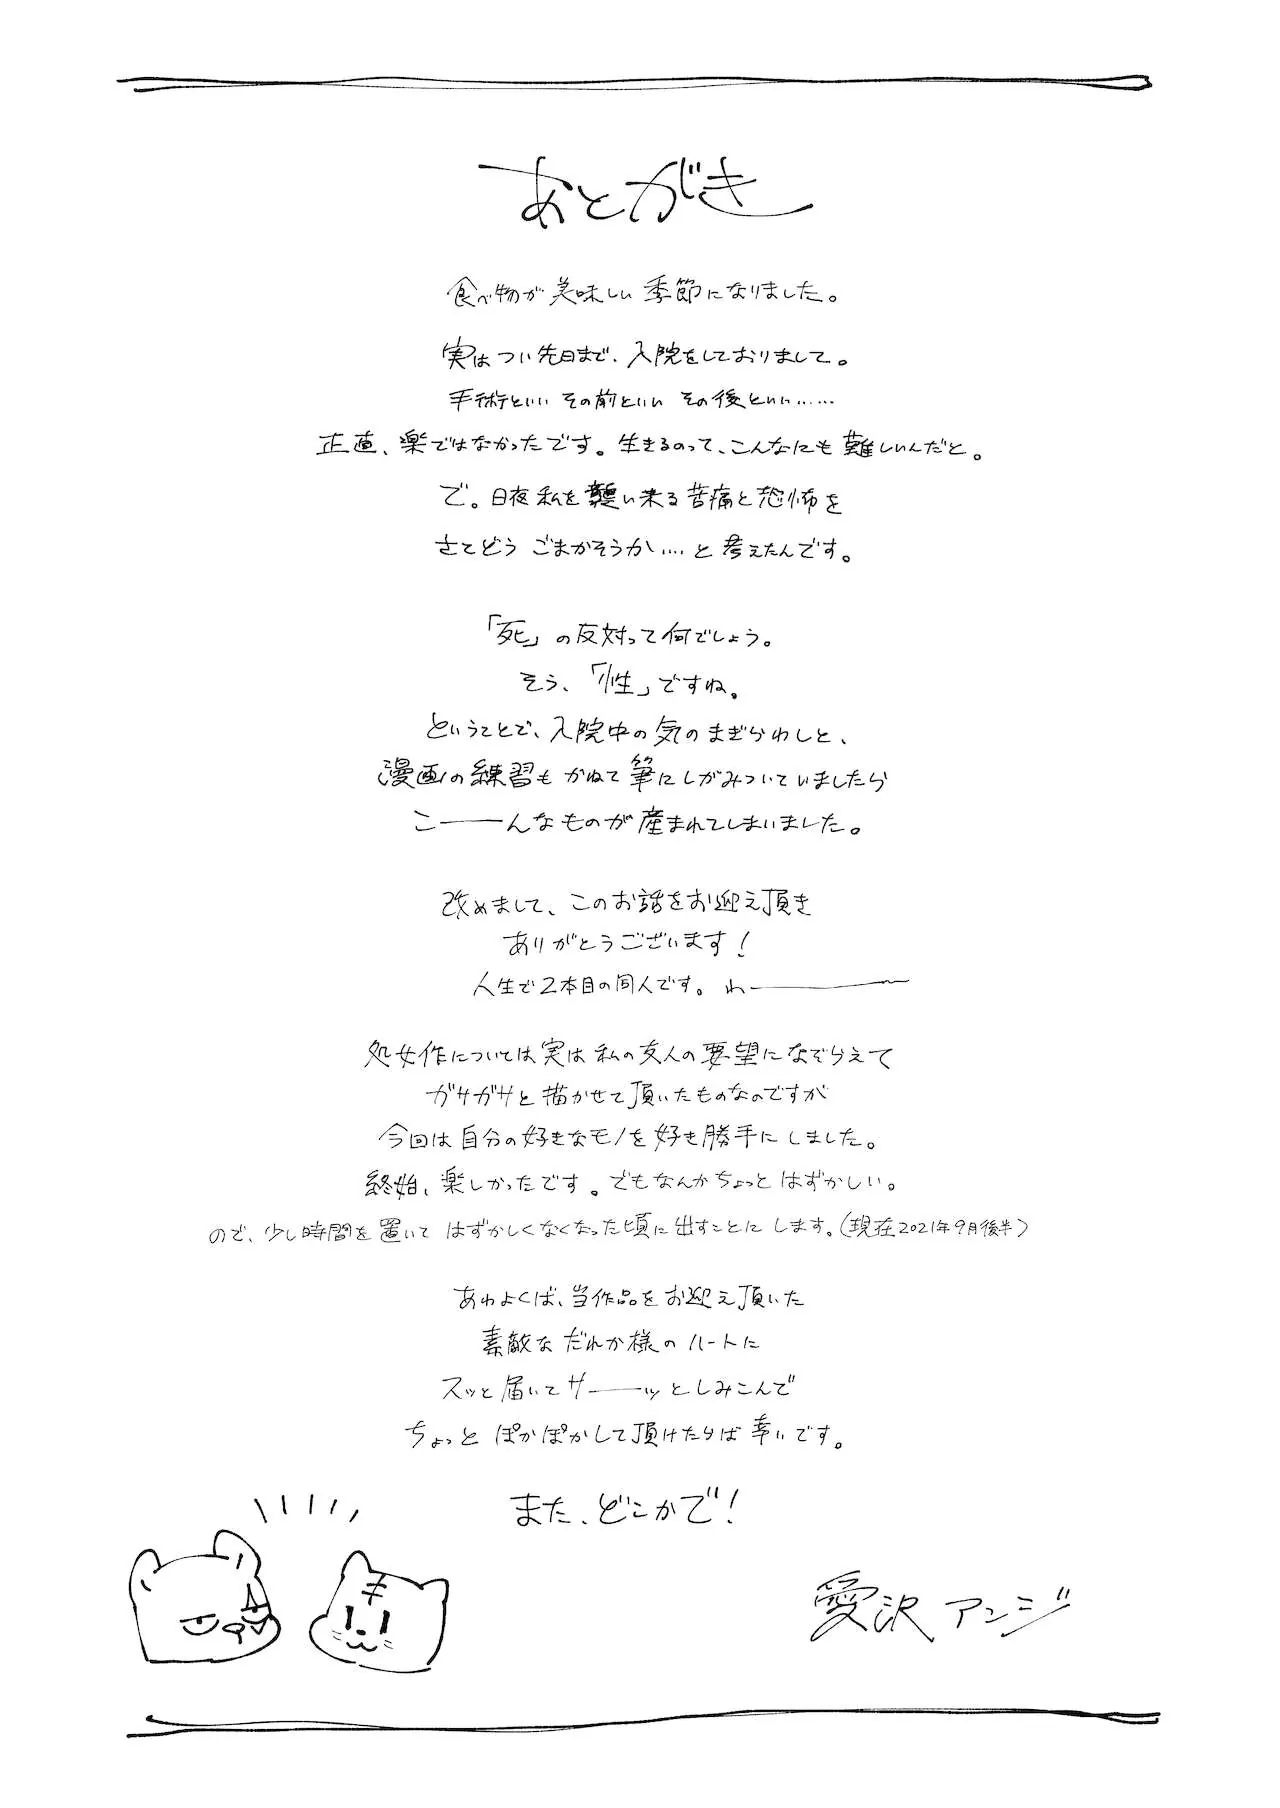 あとがき
食べ物が美味しい季節になりました。
実はつい先日まで、入院をしておりまして。
手術といい その前といい その後といい……
正直、楽ではなかったです。生きるのって、こんなにも難しいんだと。
で。日夜私を襲い来る苦痛と恐怖を
さてどう ごまかそうか‥‥と考えたんです。
「死」の反対って何でしょう。
そう、「性」ですね。
ということで、入院中の気のまぎらわしと、
漫画の練習もかねて筆にしがみついていましたら
こ───んなものが産まれてしまいました。
改めまして、このお話をお迎え頂き
ありがとうございます！
人生で2本目の同人です。わ─────
処女作については実は私の友人の要望になぞらえて
ガサガサと描かせて頂いたものなのですが
今回は自分の好きなモノを好き勝手にしました。
終始、楽しかったです。でもなんかちょっとはずかしい。
ので、少し時間を置いて はずかしくなくなった頃に出すことにします。(現在2021年9月後半)
あわよくば、当作品をお迎え頂いた
素敵なだれか様のハートに
スッと届いてサ───ッとしみこんで
ちょっと ぽかぽかして頂けたらば幸いです。
また、どこかで！
愛沢アンジ